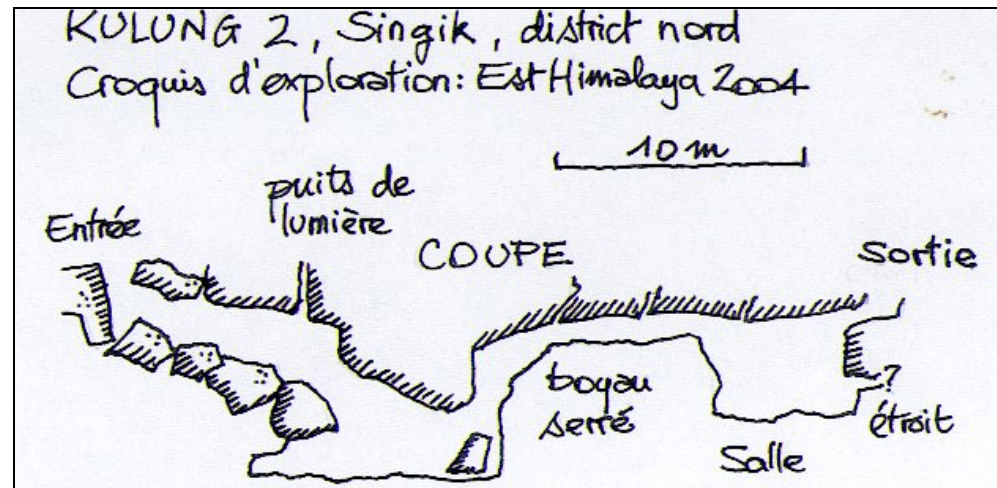 KULUNG 2, Singik, district nord
Croquis d'exploration: Est Himalaya 2004
10 m
puits de
lumière
Entrée
COUPE
Sortie
boyau
serré
?
étroit
Salle